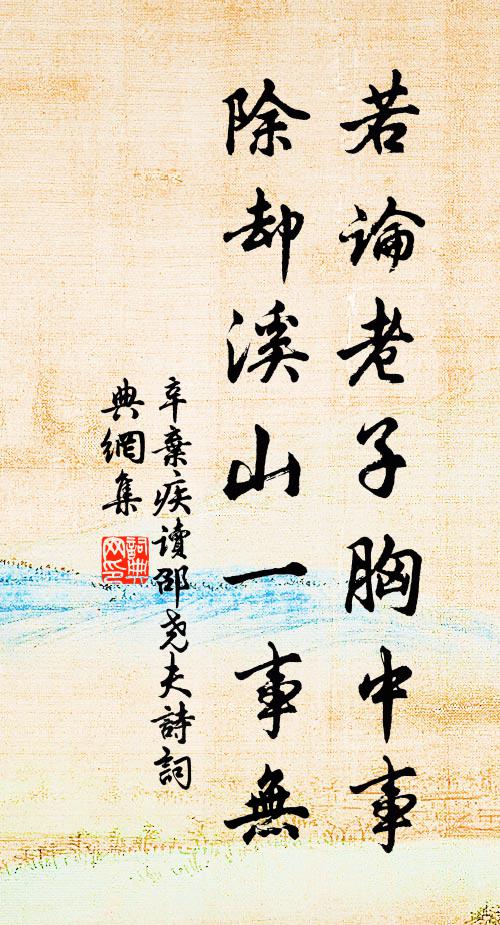 若論老子胸中事
除却溪山一事無
辛棄疾讀邵堯夫詩詞
典網集
詞典
网印